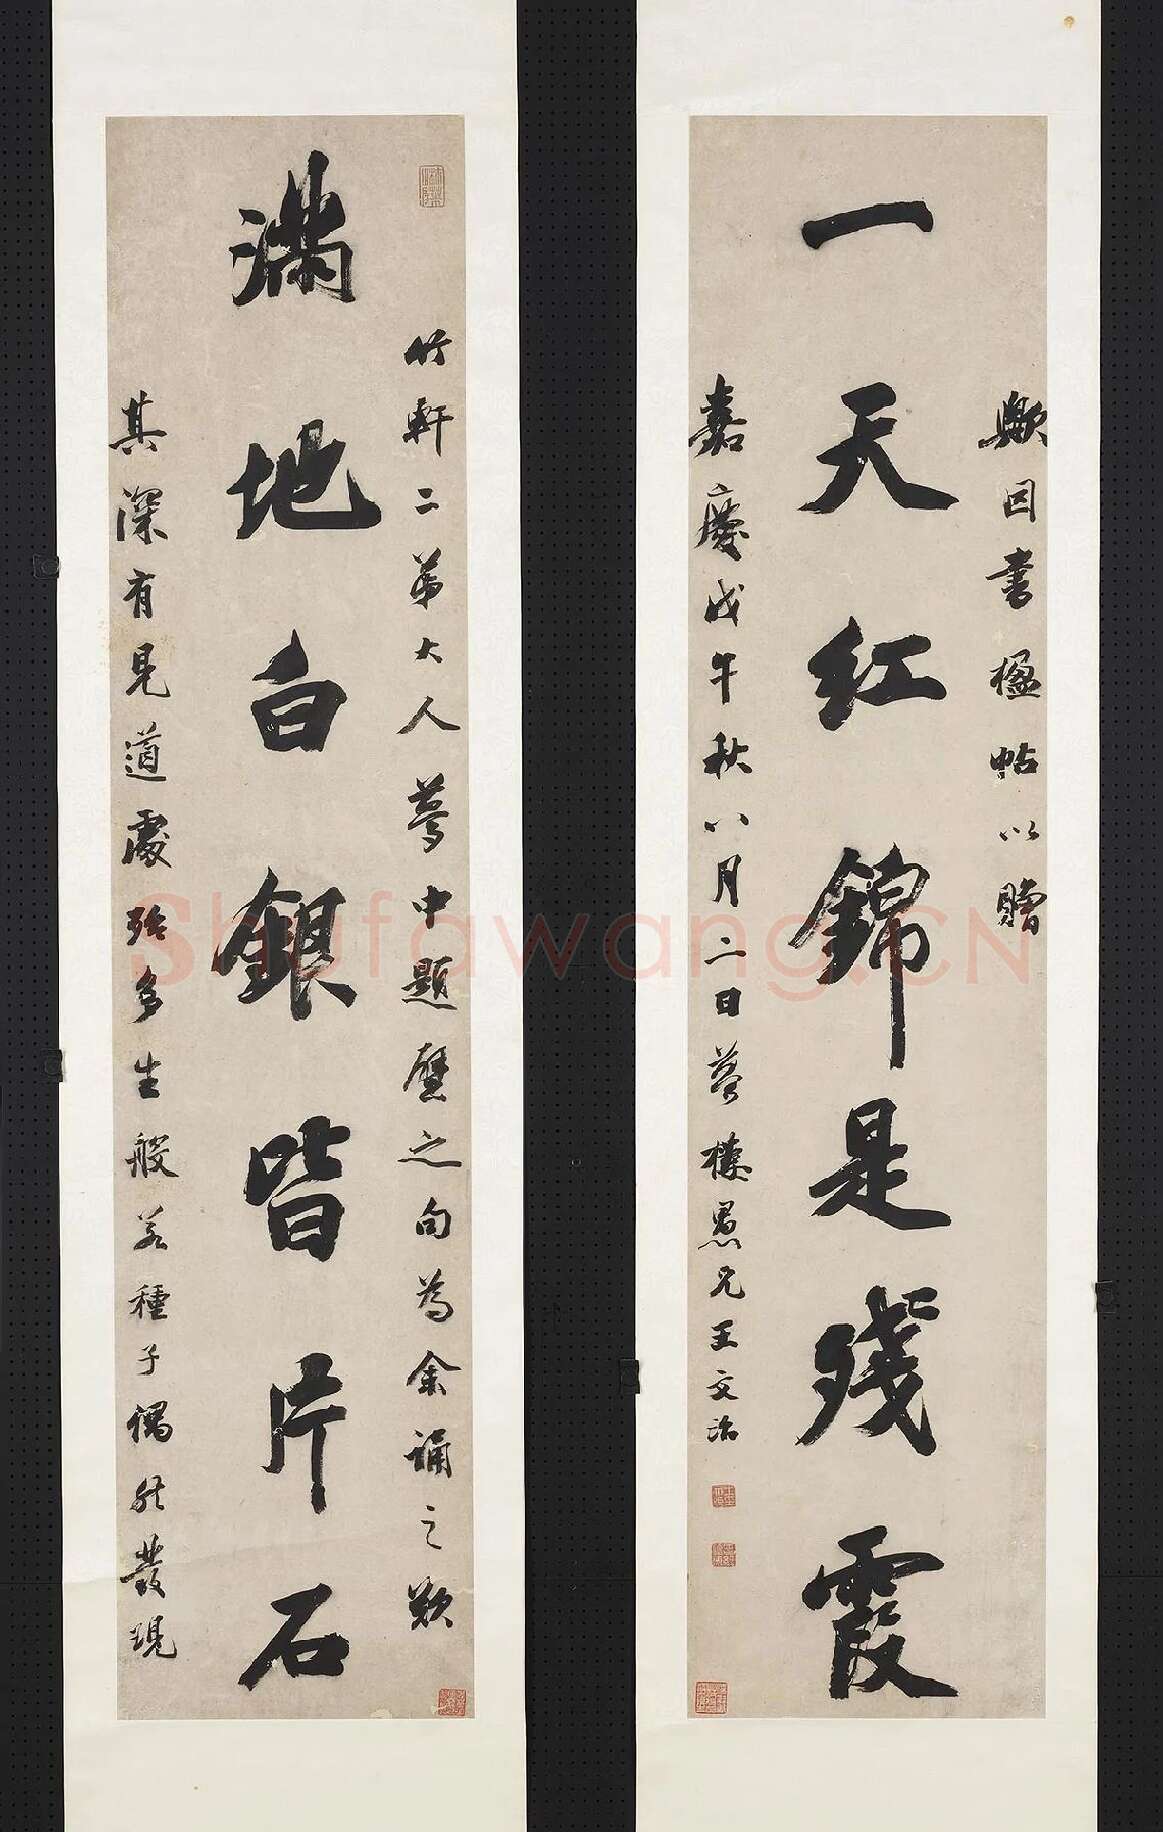 竹軒二弟大人夢中題壁之句為余誦之歎
滿地白銀皆片石
其深有見道處殆多生般若種子偶然發現
歟因書楹帖以贈
一天紅錦是殘霞
嘉慶戊午秋八月二日夢樓愚兄王文治
Shufawang.CN